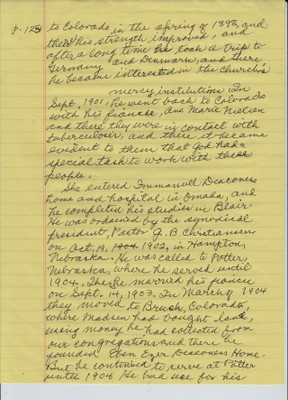 p. 125 to Colorado in the spring of 1898, and
there his strength improved, and
after a long time he took a trip to
Germany and Denmark, and there
he became interested in the church's
mercy institutions. In
Sept. 1901, he went back to Colorado
with his fiancée, Ane Marie Nielsen
and there they were in contact with
tuberculosis, and there it became
evident to them that God had a
special task to work with these
people.
She entered Immanuel Deaconess
Home and Hospital in Omaha, and
he completed his studies in Blair.
He was ordained by the synodical
president, Pastor G. B. Christiansen
on Oct. 19, 1902, in Hampton,
Nebraska. He was called to Potter,
Nebraska, where he served until
1904. He married his fiancee
on Sept. 14, 1903. In March 1904
they moved to Brush, Colorado,
where Madsen had bought land,
using money he had collected from
our congregations and there he
founded Eben Ezer Deaconess Home.
But he continued to serve at Potter
until 1906. He had use for his